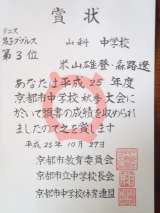 賞状
テニス
男子ダブルス
第3位
山科 中学校
米山雄登・森路遥
あなたは平成25年度
京都市中学校秋季大会に
於いて頭書の成績を収められ
ましたので之を賞します
平成25年10月27日
京都市教育委員会
京都市立中学校長会
京都市中学校体育連盟